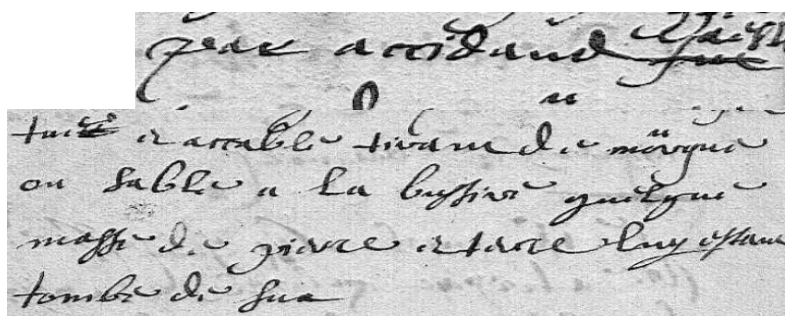 par accidand
tué et accable tirant de morgue
ou sable a la bussire quelque
masse de pierre et terre luy estant
tombe de sus